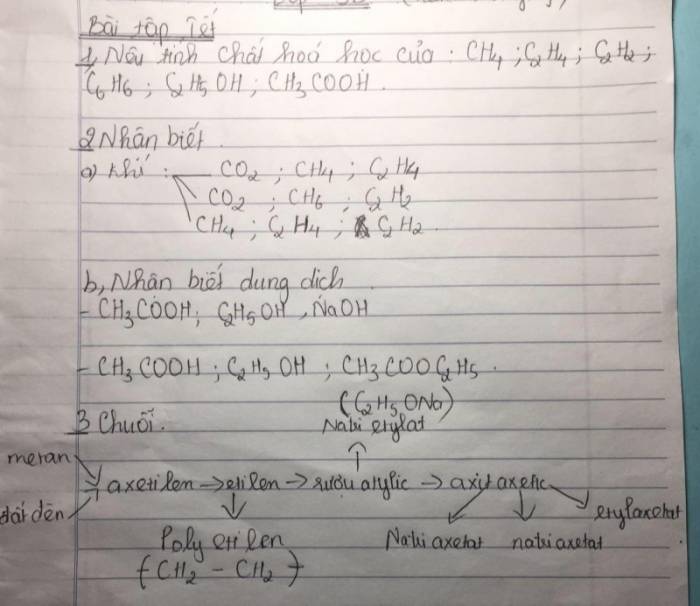 Bài tập Tết
1, Nêu tính chất hoá học của : CH4 ; C2H4 ; C2H2 ;
C6H6 ; C2H5OH ; CH3COOH.
2 Nhân biết
a) Khí : CO2 ; CH4 ; C2H4
CO2 ; CH6 ; C2H2
CH4 ; C2H4 ; C2H2.
b, Nhân biết dung dich
- CH3COOH ; C2H5OH , NaOH
- CH3COOH ; C2H5OH ; CH3COOC2H5.
(C2H5ONa)
3 Chuối. Natri etylat
metan
axetilen → etilen → rượu etylic → axit axetic
đất đèn etylaxetat
Poly etilen Natri axetat natri axetat
(CH2 - CH2)